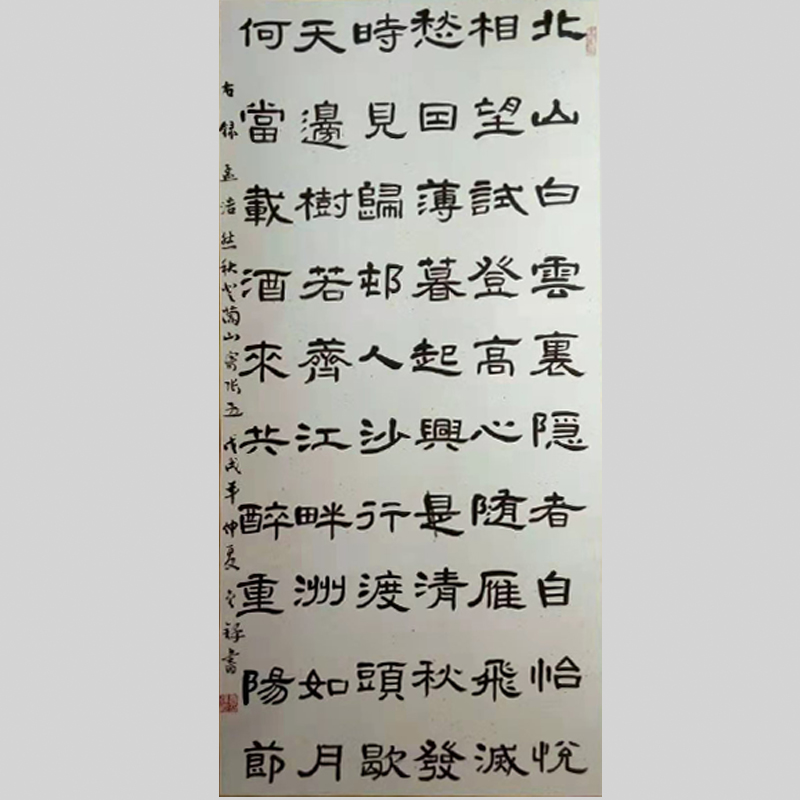 北山白雲裏隐者自怡悅
相望試登高心随雁飛滅
愁因薄暮起興是清秋發
時見歸邨人沙行渡頭歇
天邊樹若薺江畔洲如月
何當載酒來共醉重陽節
右録孟浩然秋登蘭山寄張五戊戌年仲夏書